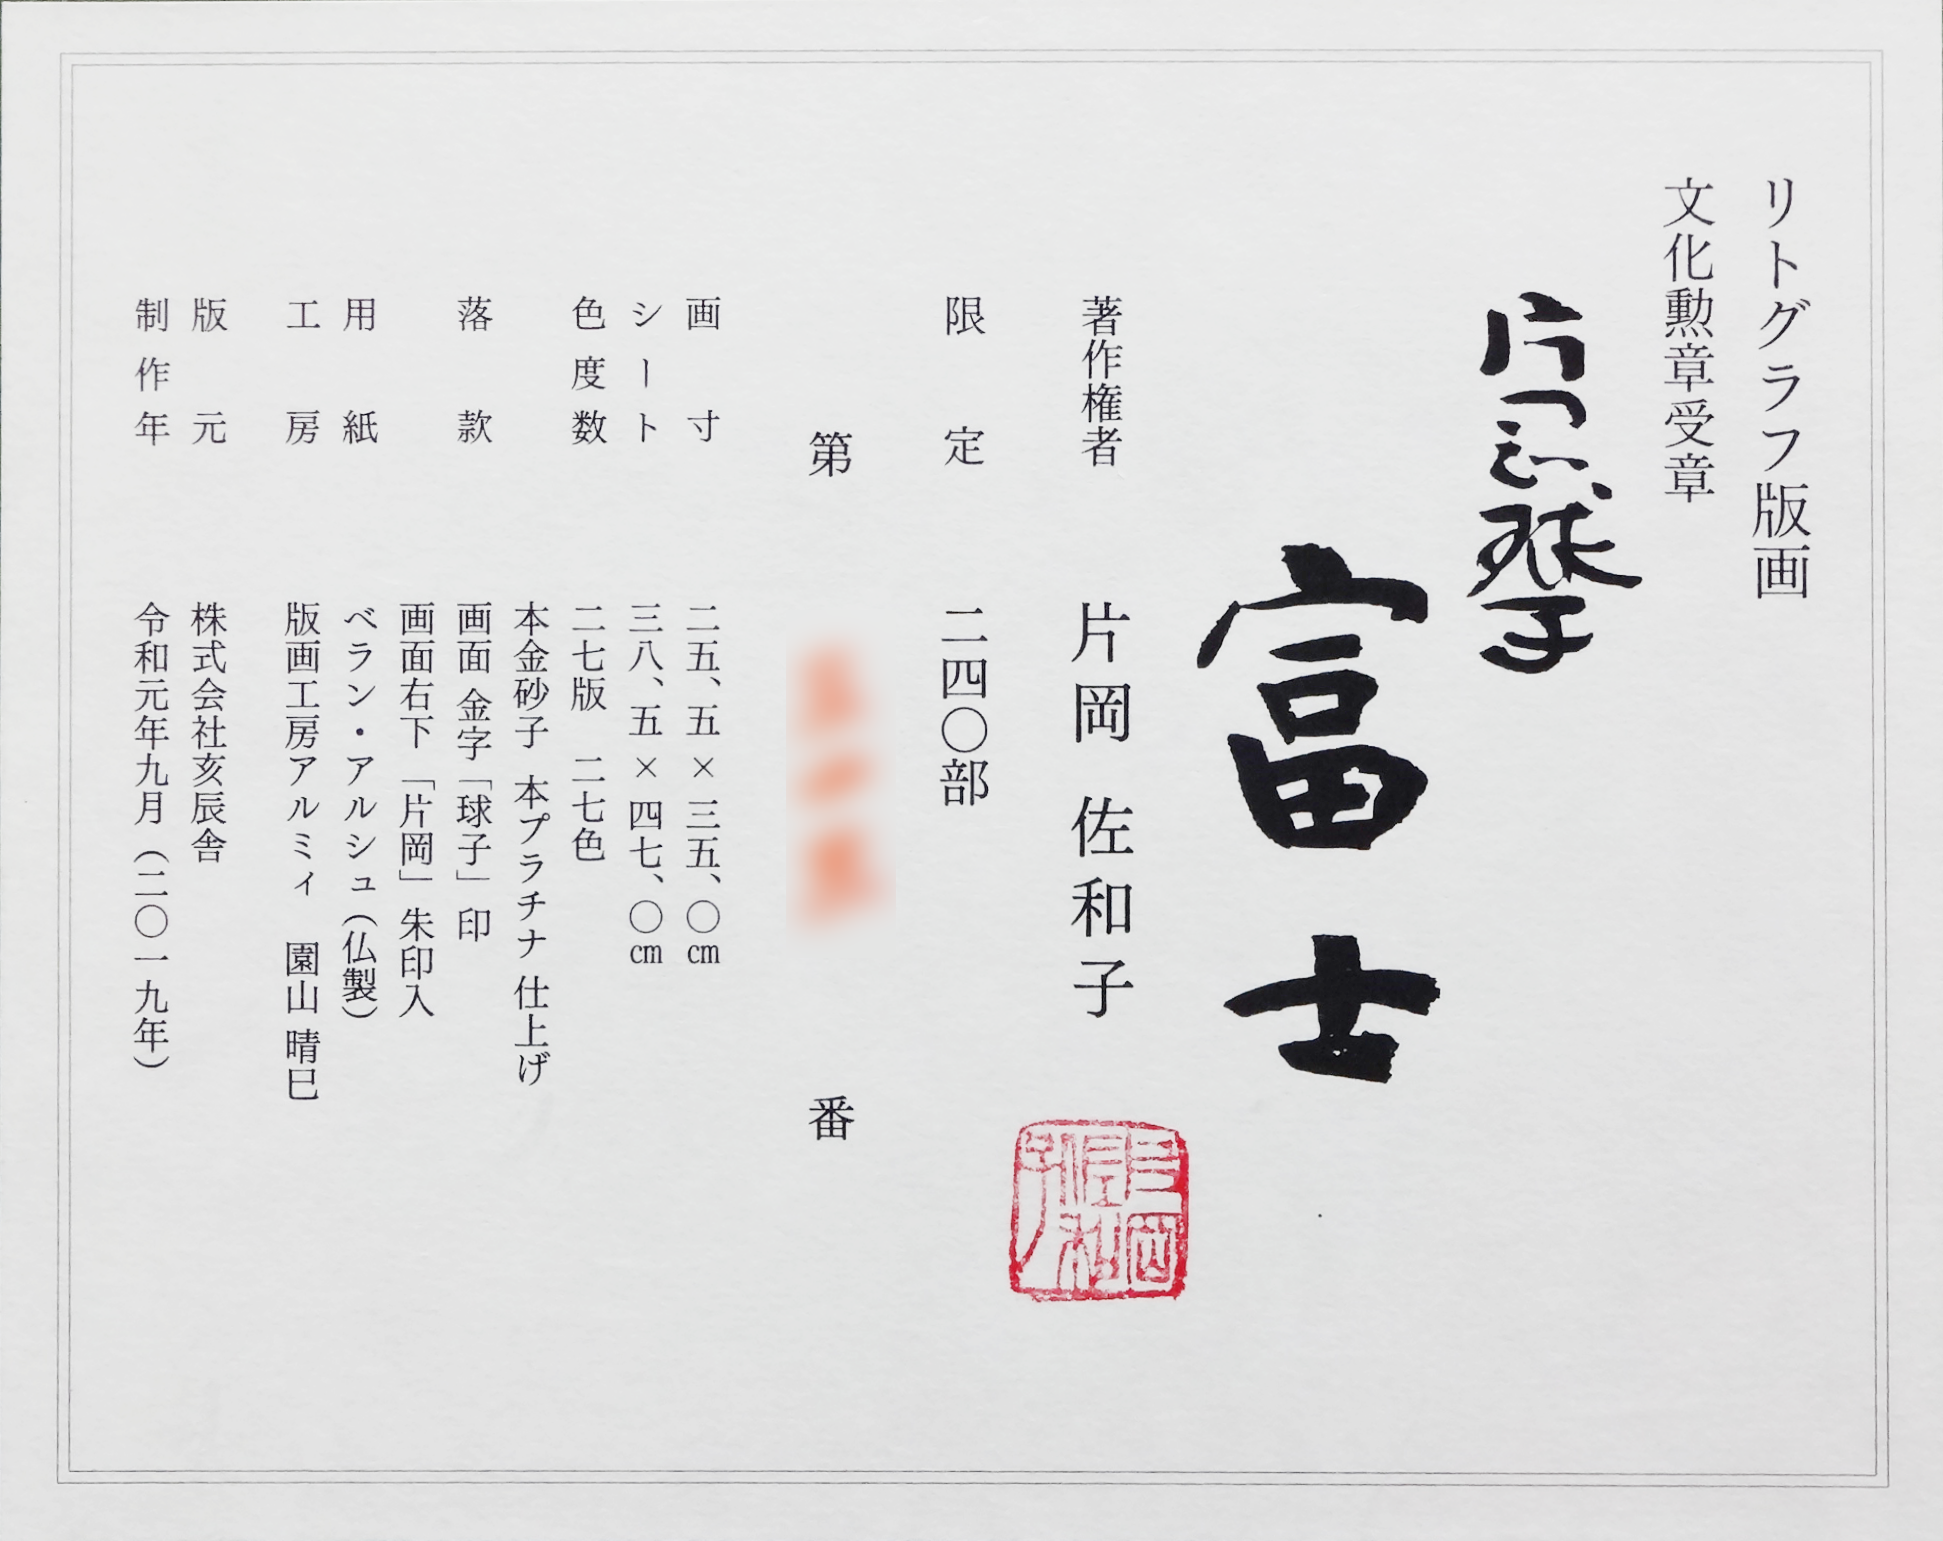 リトグラフ版画
文化勲章受章
片岡球子
富士
著作権者 片岡 佐和子
片岡佐和子
限定 二四〇部
第 番
画寸 二五、五×三五、〇㎝
シート 三八、五×四七、〇㎝
色度数 二七版 二七色
本金砂子 本プラチナ 仕上げ
落款 画面 金字「球子」印
画面右下「片岡」朱印入
用紙 ベラン・アルシュ(仏製)
工房 版画工房アルミィ 園山 晴巳
版元 株式会社亥辰舎
制作年 令和元年九月(二〇一九年)